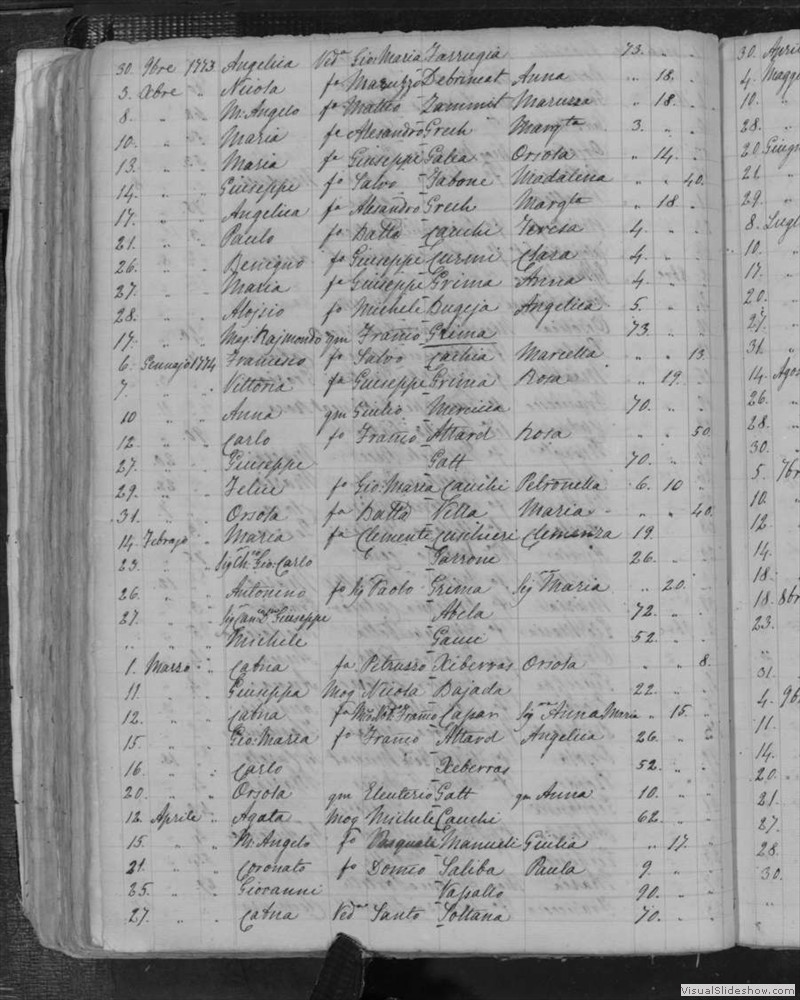 30. 9bre 1773 Angelica Ved.a Gio: Maria Farrugia 73. " "
3. Xbre " Nicola fo Maruzzo Debrincat Anna " 18. "
8. " " M. Angelo fo Matteo Zammit Maruzza " 18. "
10. " " Maria fa Alesandro Grech Marg.ta 3. " "
13. " " Maria fa Giuseppe Galea Orsola " 14. "
14. " " Giuseppe fo Salvo Tabone Madalena " " 40.
17. " " Angelica fa Alesandro Grech Marg.ta " 18. "
21. " " Paulo fo Batta Cauchi Teresa 4. " "
26. " " Benigno fo Giuseppe Curmi Clara 4. " "
27. " " Maria fa Giuseppe Grima Anna 4. " "
28. " " Alojsio fo Michele Bugeja Angelica 5. " "
17. " " Mag: Rajmondo qm Franco Grima 73. " "
6. Gennajo 1774 Francesco fo Salvo Cachia Marcella " " 13.
7. " " Vittoria fa Giuseppe Grima Rosa " 19. "
10 " " Anna qm Giulio Mercieca 70. " "
12 " " Carlo fo Franco Attard Rosa " " 50.
27. " " Giuseppe Gatt 70. " "
29. " " Felice fo Gio: Maria Cauchi Petronella 6. 10 "
31. " " Orsola fa Batta Vella Maria " " 40.
14. Febrajo " Maria fa Clemente Cuschieri Clemenza 19.
23. " " Gio: Carlo Parroni 26. " "
26. " " Antonino fo Sig Paolo Grima Sig Maria " 20. "
27. " " Giuseppe Abela 72. " "
" " " Michele Gauci 52. " "
1. Marzo " Catna fa Petruzzo Xiberras Orsola " " 8.
11 " " Giuseppa Mog Nicola Bajada 22. " "
12. " " Catna fa Franco Capar Sig.ra Anna Maria " 15. "
15. " " Gio: Maria fo Franco Attard Angelica 26. " "
16 " " Carlo Xeberras 52. " "
20. " " Orsola qm Eleuterio Gatt qm Anna 10. " "
12 Aprile " Agata Mog Michele Cauchi 62. " "
15. " " M. Angelo fo Pasquale Manueli Giulia " 17. "
21. " " Coronato fo Domco Saliba Paula 9. " "
25. " " Giovanni Vapallo 90. " "
27. " " Catna Ved.a Santo Soltana 70. " "
30. April
4. Maggi
10. "
28. "
20. Giugn
21. "
29. "
8. Lugl
10. "
17. "
20. "
27. "
31. "
14. Agos
26. "
28. "
30. "
5. 7br
10. "
12. "
14.
18.
18. 8br
23.
"
31.
4. 9b
11.
14.
20.
21.
27.
28.
30.
VisualSlideshow.com